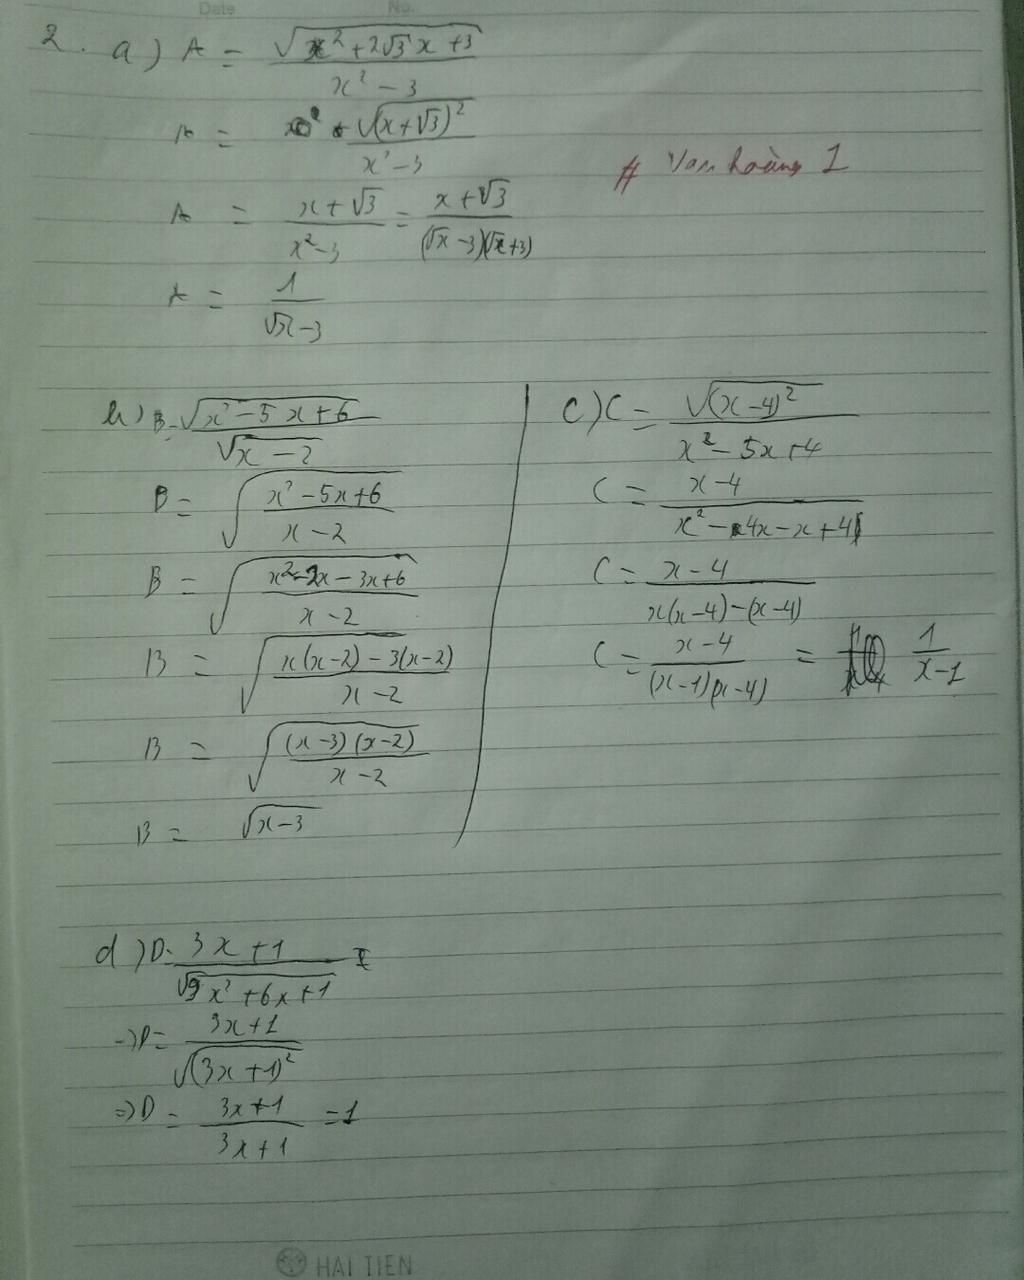 Date No.
2. a) A = √(x² + 2√3 x + 3) / (x² - 3)
A = √((x + √3)²) / (x² - 3)
# Vam hoàng 1
A = (x + √3) / (x² - 3) = (x + √3) / ((√x - 3)(√x + 3))
A = 1 / (√x - 3)
b) B = √(x² - 5x + 6) / √(x - 2)
B = √((x² - 5x + 6) / (x - 2))
B = √((x² - 2x - 3x + 6) / (x - 2))
B = √((x(x - 2) - 3(x - 2)) / (x - 2))
B = √(((x - 3)(x - 2)) / (x - 2))
B = √(x - 3)
c) C = √((x - 4)²) / (x² - 5x + 4)
C = (x - 4) / (x² - 4x - x + 4)
C = (x - 4) / (x(x - 4) - (x - 4))
C = (x - 4) / ((x - 1)(x - 4)) = 1 / (x - 1)
d) D = (3x + 1) / √(9x² + 6x + 1)
→ D = (3x + 1) / √((3x + 1)²)
⇒ D = (3x + 1) / (3x + 1) = 1
HAI TIEN